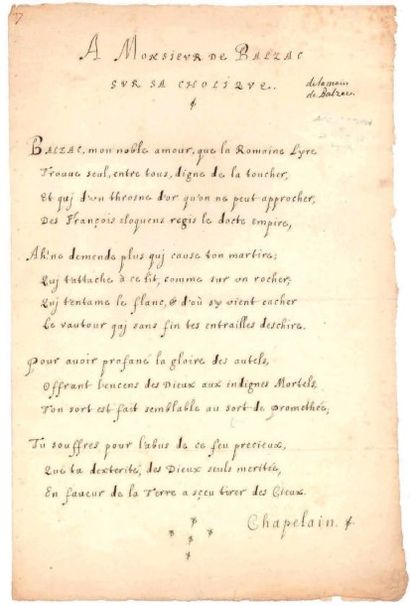 A MONSIEVR DE BALZAC
SVR SA CHOLIQVE.
de la main
de Balzac.
BALZAC, mon noble amour, que la Romaine Lyre
Trouue seul, entre tous, digne de la toucher,
Et quj d'vn throsne d'or qu'on ne peut approcher,
Des François eloquens regis le docte empire,
Ah! ne demende plus quj cause ton martire;
Quj t'attache à ce lit, comme sur vn rocher;
Quj t'entame le flanc, & d'où s'y vient cacher
Le vautour quj sans fin tes entrailles deschire.
Pour auoir profané la gloire des autels,
Offrant l'encens des Dieux aux indignes Mortels,
Ton sort est fait semblable au sort de promethée,
Tu souffres, pour l'abus de ce feu precieux,
Que ta dexterité, des Dieux seuls meritée,
En faueur de la Terre a sçeu tirer des Cieux.
Chapelain.